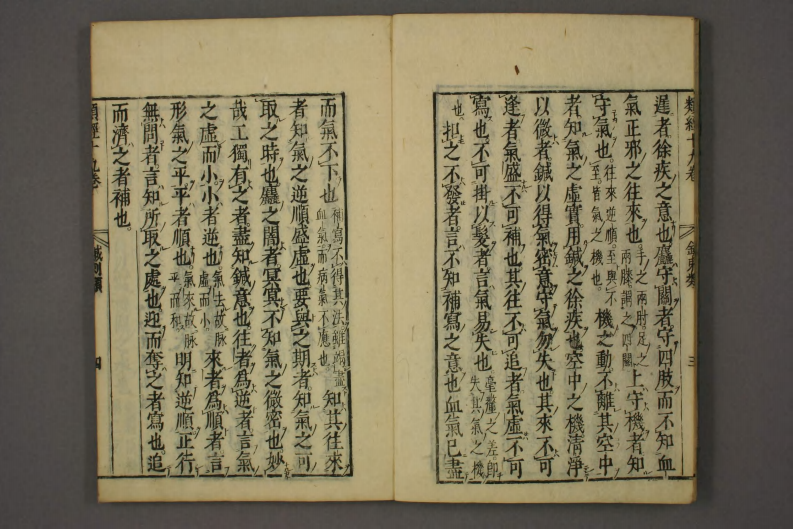 類經十九卷
鍼刺類
三
遲者徐疾之意也麤守關者守四肢而不知血
氣正邪之往來也手之兩肘足之兩膝謂之四關上守機者知
守氣也往來逆順至與不至皆氣之機也機之動不離其空中
者知氣之虛實用鍼之徐疾也空中之機清淨
以微者鍼以得氣密意守氣勿失也其來不可
逢者氣盛不可補也其往不可追者氣虛不可
寫也不可掛以髮者言氣易失也毫釐之差即失其氣之機
也扣之不發者言不知補寫之意也血氣已盡
而氣不下也補寫不得其法雖竭盡血氣而病氣不應也知其往來
者知氣之逆順盛虛也要與之期者知氣之可
取之時也麤之闇者冥冥不知氣之微密也妙
哉工獨有之者盡知鍼意也往者為逆者言氣
之虛而小小者逆也氣去故脈虛而小來者為順者言
形氣之平平者順也氣來故脈平而和明知逆順正行
無問者言知所取之處也迎而奪之者寫也追
而濟之者補也
類經十九卷
鍼刺類
四